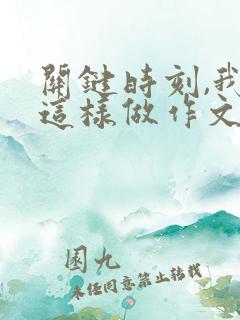 關鍵時刻,我
這樣做作文
園九
未经同意禁止转载